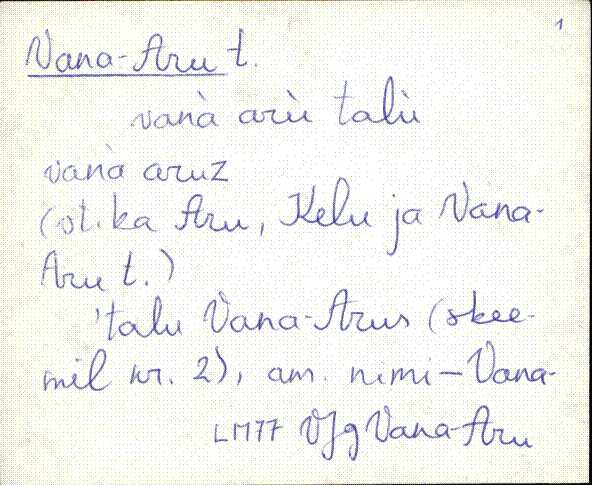 1
Vana-Aru t.
vanà arù talù
vanà aruz
(st. ka Aru, Kelu ja Vana-
Aru t.)
'talu Vana-Arus (skee-
mil nr. 2), am. nimi – Vana-
LM77 VJg Vana-Aru